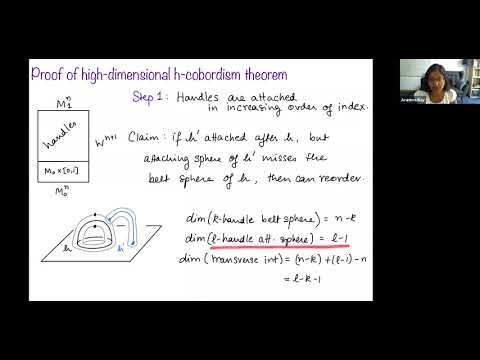 Proof of high-dimensional h-cobordism theorem
Step 1: Handles are attached
in increasing order of index.
M₁ⁿ
handles
Wⁿ⁺¹
M₀×[0,1]
M₀ⁿ
Claim: if h' attached after h, but
attaching sphere of h' misses the
belt sphere of h, then can reorder.
h
h'
dim(k-handle belt sphere) = n-k
dim(l-handle att. sphere) = l-1
dim(transverse int) = (n-k)+(l-1)-n
= l-k-1